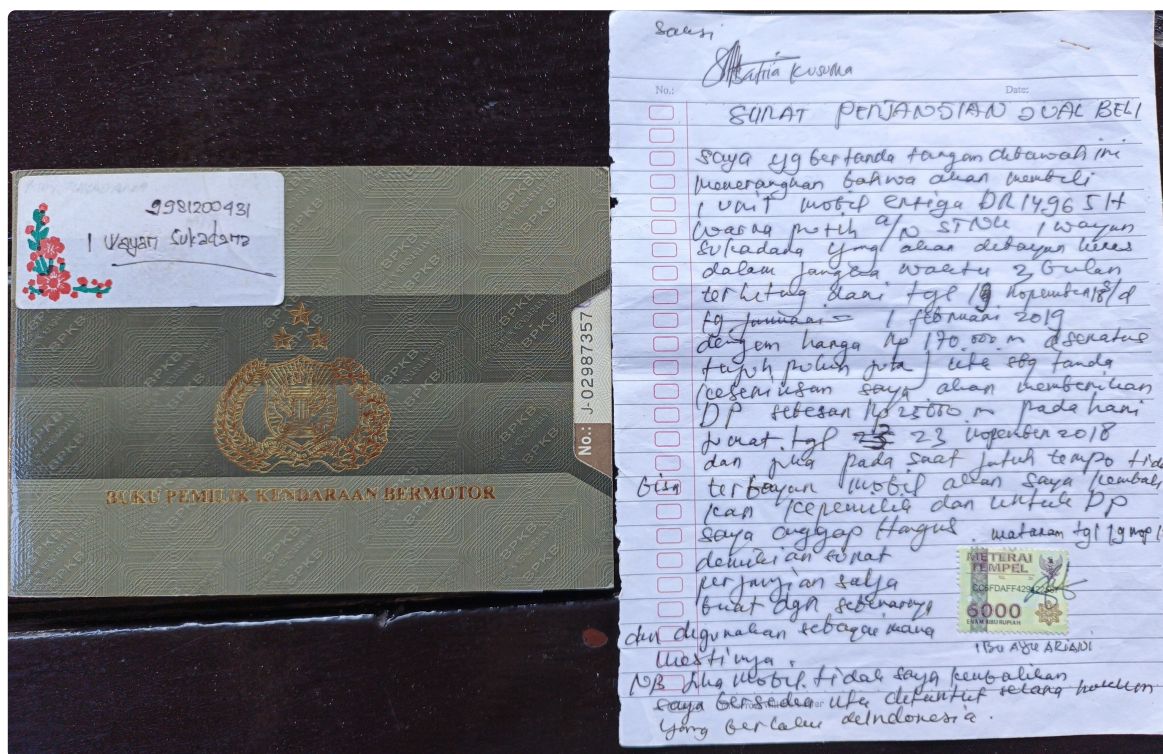 9981200431
I Wayan Sukadana
BPKB
No.: J-02987357
BUKU PEMILIK KENDARAAN BERMOTOR
Saksi
Satria Kusuma
No.:
Date:
SURAT PERJANJIAN JUAL BELI
saya yg bertanda tangan dibawah ini
menerangkan bahwa akan membeli
1 unit mobil ertiga DR 1496 SH
warna putih a/n STNK I wayan
sukadana yang akan dibayar lunas
dalam jangka waktu 3 bulan
terhitung dari tgl 19 Nopember 18 s/d
tg januari 1 februari 2019
dengan harga Rp 170.000 m (seratus
tujuh puluh juta) utk sbg tanda
keseriusan saya akan memberikan
DP sebesar Rp 25000 m pada hari
jumat tgl 23 Nopember 2018
dan jika pada saat jatuh tempo tida
bisa terbayar mobil akan saya kembali
kan kepemilik dan untuk DP
saya anggap Hangus. mataram tgl 19 nop
demikian surat
perjanjian saya
buat dgn sebenarnya
dan digunakan sebagai mana
mestinya.
METERAI
TEMPEL
6000
ENAM RIBU RUPIAH
IBU AYU ARIANI
NB jika mobil tidak saya kembalikan
saya bersedia utk dituntut
yang berlaku diIndonesia.